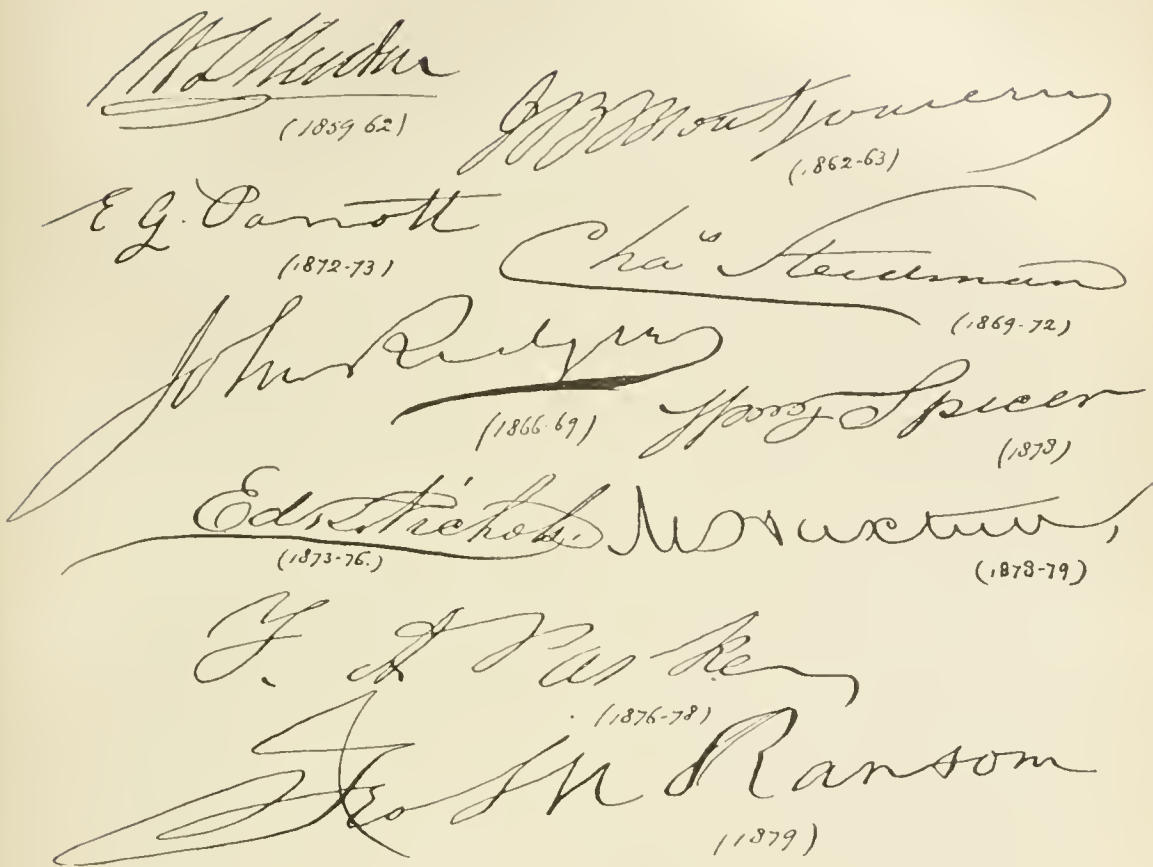 W L Hudson
(1859-62)
J B Montgomery
(1862-63)
E G. Parrott
(1872-73)
Cha^s Steedman
(1869-72)
John Rodgers
(1866-69)
Spicer
(1878)
Ed T. Nichols.
(1873-76.)
(1878-79)
F. A Parker
(1876-78)
Geo M Ransom
(1879)